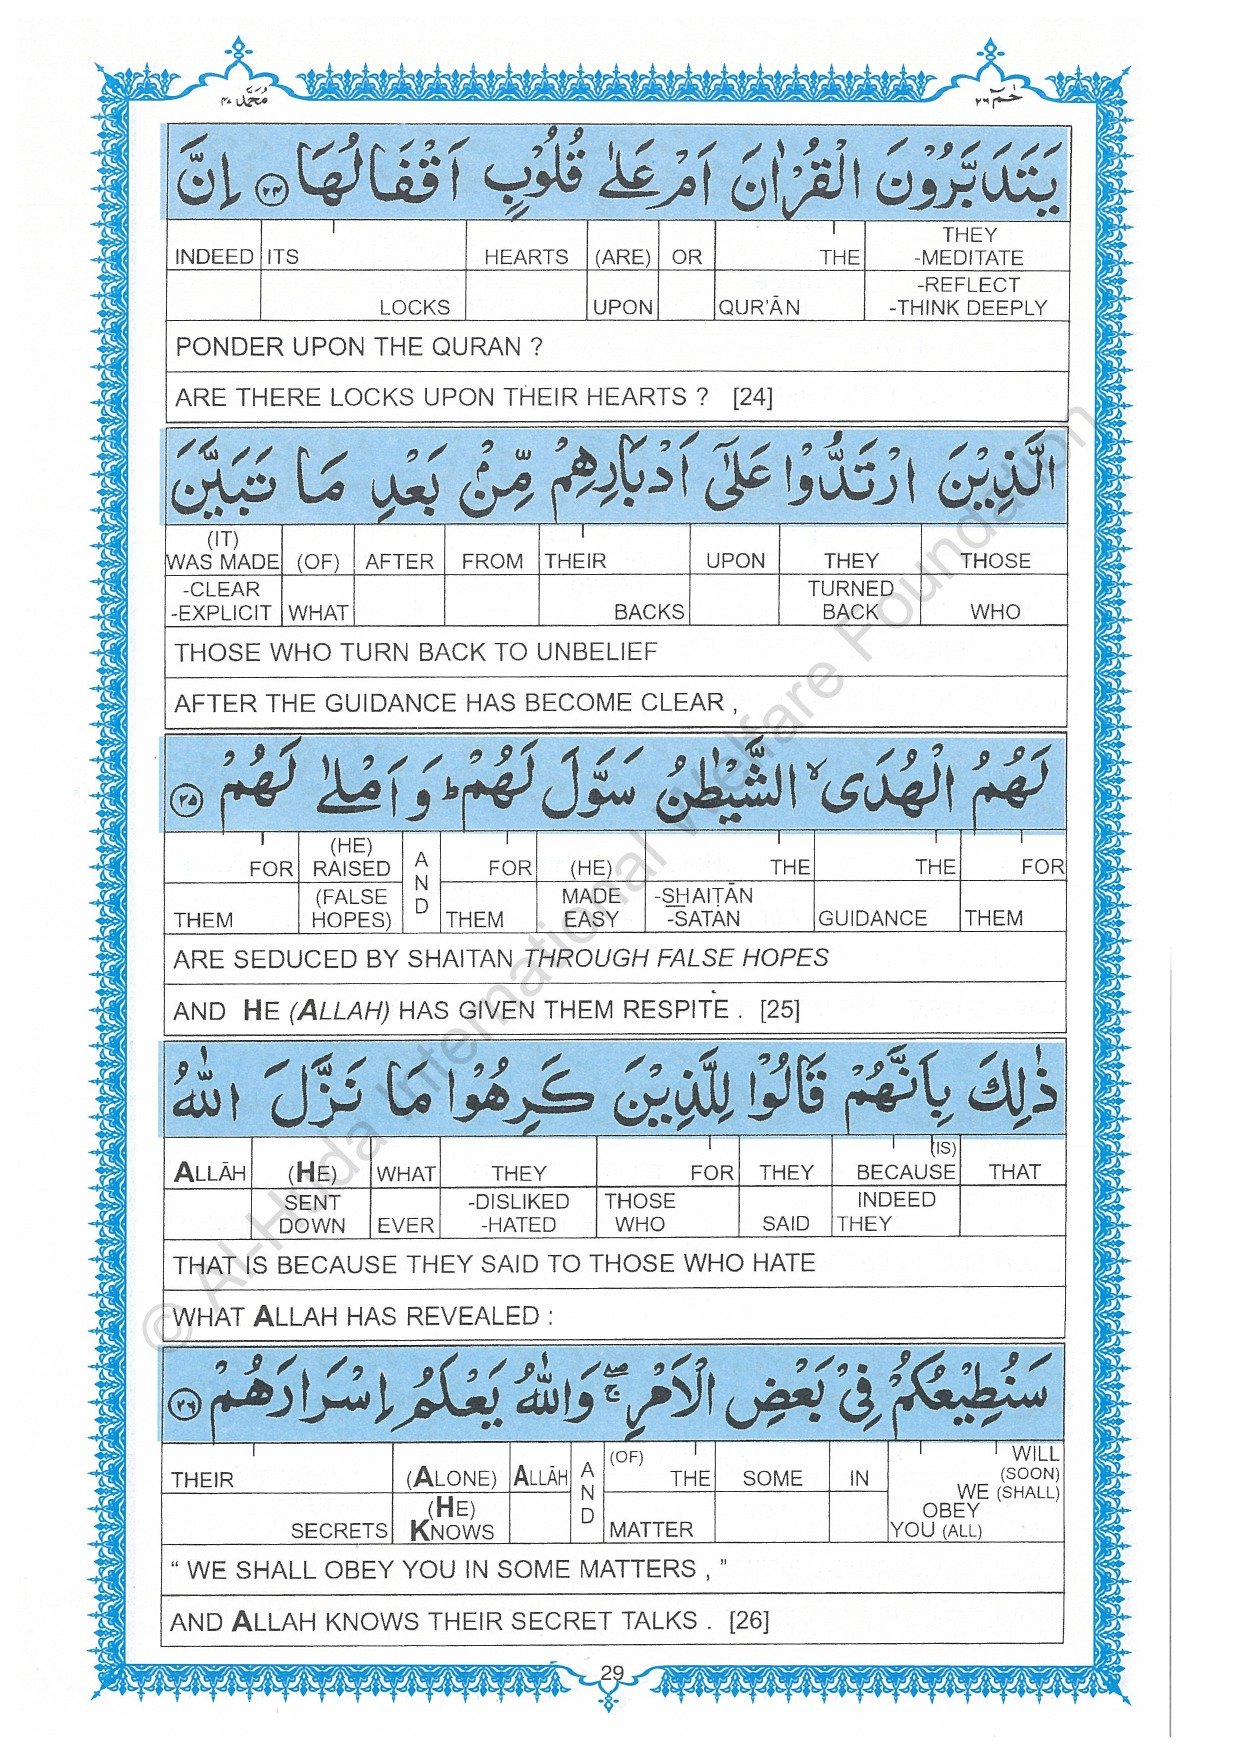 محمد ٤٧
حٰمٓ ٢٦
يَتَدَبَّرُوْنَ الْقُرْاٰنَ اَمْ عَلٰى قُلُوْبٍ اَقْفَالُهَا ﴿٢٤﴾ اِنَّ
INDEED ITS HEARTS (ARE) OR THE THEY -MEDITATE
LOCKS UPON QUR'ĀN -REFLECT -THINK DEEPLY
PONDER UPON THE QURAN ?
ARE THERE LOCKS UPON THEIR HEARTS ? [24]
الَّذِيْنَ ارْتَدُّوْا عَلٰٓى اَدْبَارِهِمْ مِّنْۢ بَعْدِ مَا تَبَيَّنَ
(IT) WAS MADE (OF) AFTER FROM THEIR UPON THEY THOSE
-CLEAR -EXPLICIT WHAT BACKS TURNED BACK WHO
THOSE WHO TURN BACK TO UNBELIEF
AFTER THE GUIDANCE HAS BECOME CLEAR ,
لَهُمُ الْهُدَى ۙ الشَّيْطٰنُ سَوَّلَ لَهُمْ ؕ وَاَمْلٰى لَهُمْ ﴿٢٥﴾
FOR (HE) RAISED AND FOR (HE) THE THE FOR
THEM (FALSE HOPES) THEM MADE EASY -SHAIṬĀN -SATAN GUIDANCE THEM
ARE SEDUCED BY SHAITAN THROUGH FALSE HOPES
AND HE (ALLAH) HAS GIVEN THEM RESPITE . [25]
ذٰلِكَ بِاَنَّهُمْ قَالُوْا لِلَّذِيْنَ كَرِهُوْا مَا نَزَّلَ اللّٰهُ
ALLĀH (HE) WHAT THEY FOR THEY BECAUSE (IS) THAT
SENT DOWN EVER -DISLIKED -HATED THOSE WHO SAID INDEED THEY
THAT IS BECAUSE THEY SAID TO THOSE WHO HATE
WHAT ALLAH HAS REVEALED :
سَنُطِيْعُكُمْ فِيْ بَعْضِ الْاَمْرِ ۖۚ وَاللّٰهُ يَعْلَمُ اِسْرَارَهُمْ ﴿٢٦﴾
THEIR (ALONE) ALLĀH AND (OF) THE SOME IN WILL (SOON) WE (SHALL)
SECRETS (HE) KNOWS MATTER OBEY YOU (ALL)
“ WE SHALL OBEY YOU IN SOME MATTERS , ”
AND ALLAH KNOWS THEIR SECRET TALKS . [26]
29
© Al-Huda International Welfare Foundation